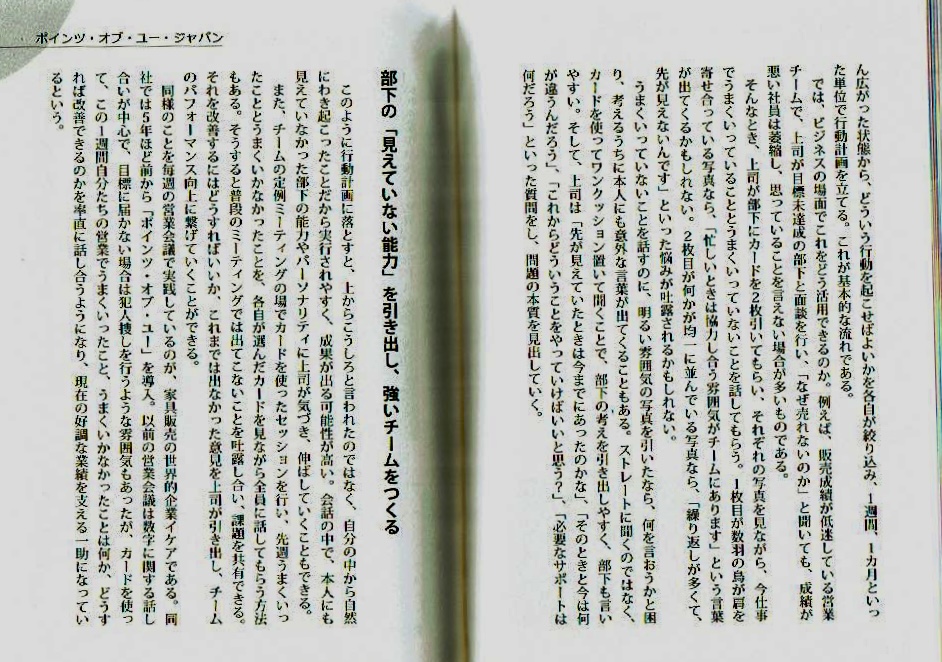 ん広がった状態から、どういう行動を起こせばよいかを各自が絞り込み、1週間、1カ月といっ
た単位で行動計画を立てる。これが基本的な流れである。
では、ビジネスの場面でこれをどう活用できるのか。例えば、販売成績が低迷している営業
チームで、上司が目標未達成の部下と面談を行い、「なぜ売れないのか」と聞いても、成績が
悪い社員は萎縮し、思っていることを言えない場合が多いものである。
そんなとき、上司が部下にカードを2枚引いてもらい、それぞれの写真を見ながら、今仕事
でうまくいっていることとうまくいっていないことを話してもらう。1枚目が数羽の鳥が肩を
寄せ合っている写真なら、「忙しいときは協力し合う雰囲気がチームにあります」という言葉
が出てくるかもしれない。2枚目が何かが均一に並んでいる写真なら、「繰り返しが多くて、
先が見えないんです」といった悩みが吐露されるかもしれない。
うまくいっていないことを話すのに、明るい雰囲気の写真を引いたなら、何を言おうかと困
り、考えるうちに本人にも意外な言葉が出てくることもある。ストレートに聞くのではなく、
カードを使ってワンクッション置いて聞くことで、部下の考えを引き出しやすく、部下も言い
やすい。そして、上司は「先が見えていたときは今までにあったのかな」、「そのときと今は何
が違うんだろう」、「これからどういうことをやっていけばいいと思う?」、「必要なサポートは
何だろう」といった質問をし、問題の本質を見出していく。
ポインツ・オブ・ユー・ジャパン
部下の「見えていない能力」を引き出し、強いチームをつくる
このように行動計画に落とすと、上からこうしろと言われたのではなく、自分の中から自然
にわき起こったことだから実行されやすく、成果が出る可能性が高い。会話の中で、本人にも
見えていなかった部下の能力やパーソナリティに上司が気づき、伸ばしていくこともできる。
また、チームの定例ミーティングの場でカードを使ったセッションを行い、先週うまくいっ
たこととうまくいかなかったことを、各自が選んだカードを見ながら全員に話してもらう方法
もある。そうすると普段のミーティングでは出てこないことを吐露し合い、課題を共有できる。
それを改善するにはどうすればいいか、これまでは出なかった意見を上司が引き出し、チーム
のパフォーマンス向上に繋げていくことができる。
同様のことを毎週の営業会議で実践しているのが、家具販売の世界的企業イケアである。同
社では5年ほど前から「ポインツ・オブ・ユー」を導入。以前の営業会議は数字に関する話し
合いが中心で、目標に届かない場合は犯人捜しを行うような雰囲気もあったが、カードを使っ
て、この1週間自分たちの営業でうまくいったこと、うまくいかなかったことは何か、どうす
れば改善できるのかを率直に話し合うようになり、現在の好調な業績を支える一助になってい
るという。